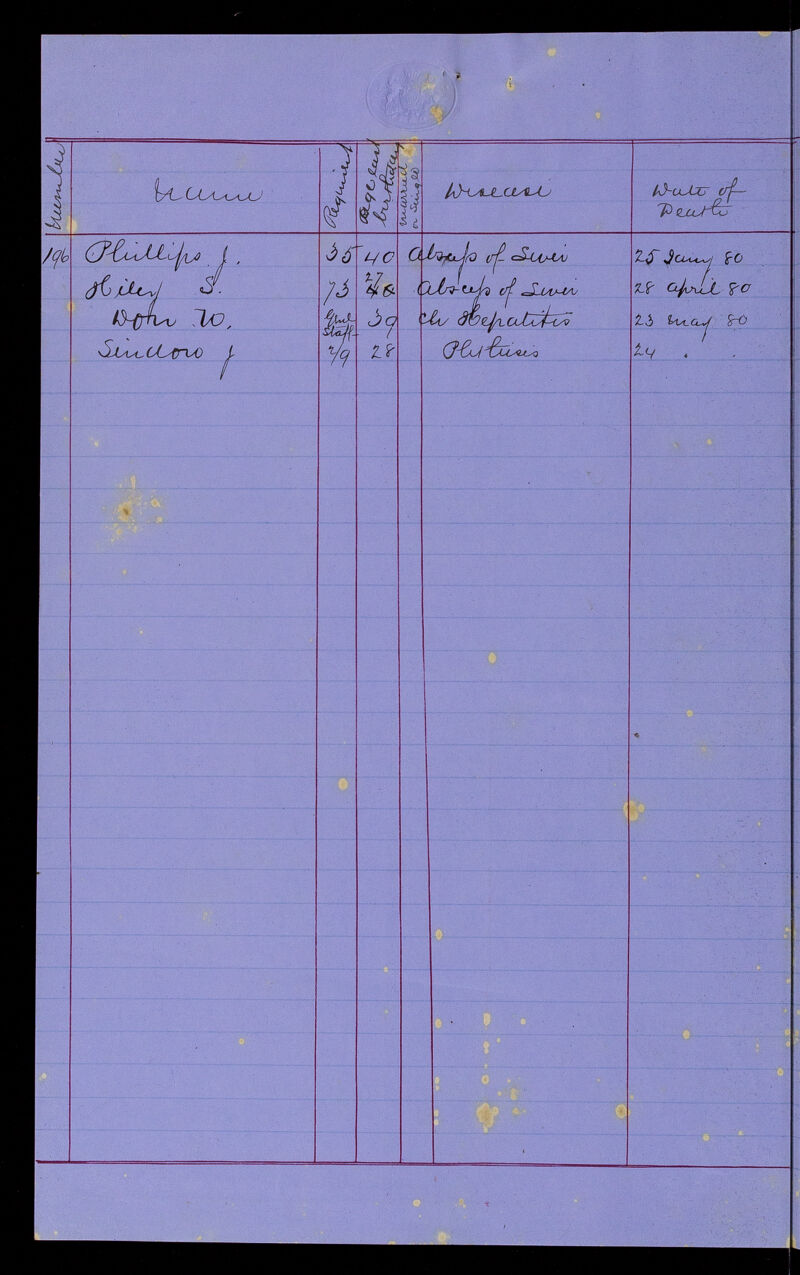 Number Name Regiment Age last birthday married or Single Disease Date of Death
196 Phillips J. 35 40 Abscess of Liver 25 Jany 80
Hiley S. 73 27 Abscess of Liver 28 April 80
Dorn W. Genl Staff 39 Ch Hepatitis 23 May 80
J 2/9 28 Phthisis 24 . .